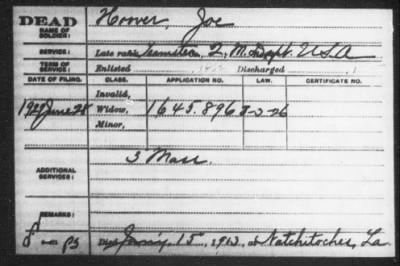 DEAD
NAME OF SOLDIER: Hoover, Joe
SERVICE: Late rank, Teamster, 2, M. Dept. U.S.A
TERM OF SERVICE: Enlisted Discharged
DATE OF FILING. CLASS. APPLICATION NO. LAW. CERTIFICATE NO.
Invalid,
1929 June 28 Widow, 1645.896 5-3-26
Minor,
ADDITIONAL SERVICES: 3 Mass.
REMARKS:
Died 15, 1912, at Natchitoches, La.